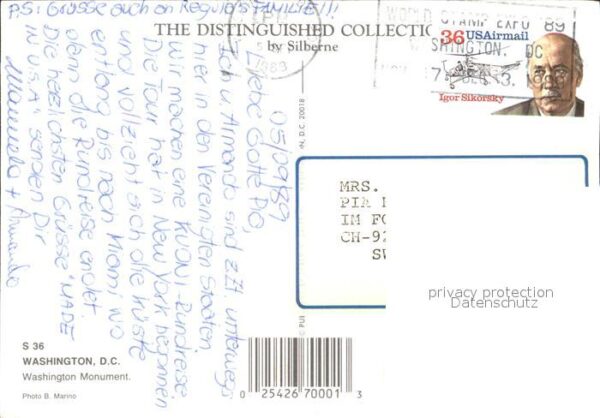 P.S: Grüsse auch an Regula's FAMILIE!!!
THE DISTINGUISHED COLLECTIO
by Silberne
WORLD STAMP EXPO '89
WASHINGTON, DC
36 USAirmail
Igor Sikorsky
05/09/89
Liebe Gotte Pia,
Ich u Armando sind z.Zt. unterwegs
hier in den Vereinigten Staaten
Wir machen eine KUONI-Rundreise.
Die Tour hat in New York begonnen
und vollzieht sich die Küste
entlang bis nach Miami wo
dann die Rundreise endet.
Die herzlichsten Grüsse "MADE
IN U.S.A." senden Dir
Manuela + Armando
N, D.C. 20018
MRS.
PIA
IM FO
CH-92
SW
privacy protection
Datenschutz
S 36
WASHINGTON, D.C.
Washington Monument.
Photo B. Marino
0 25426 70001 3